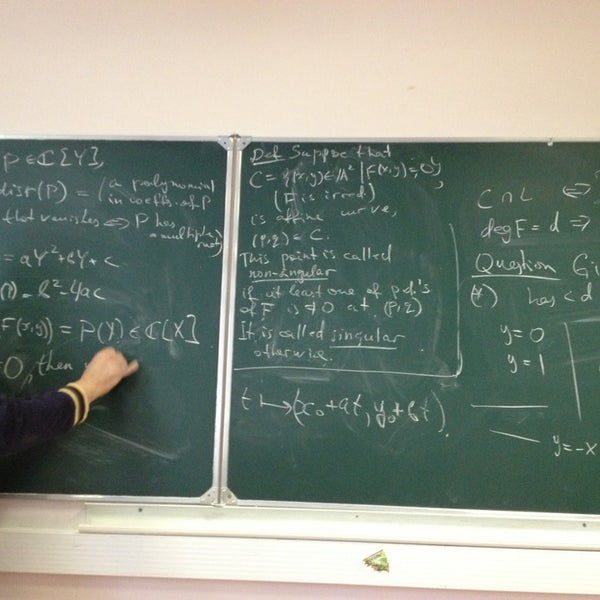 P ∈ ℂ[Y],
disc(P) = (a polynomial
in coeffs. of P
that vanishes ⇔ P has
a multiple root)
= aY² + bY + c
= b² - 4ac
F(x,y)) = P(Y) ∈ ℂ[X]
=0, then
Def Suppose that
C = {(x,y) ∈ A² | F(x,y) = 0},
(F is irred)
is affine curve,
(p,q) ∈ C.
This point is called
non-singular
if at least one of p.d.'s
of F is ≠ 0 at (p,q)
It is called singular
otherwise.
t ↦ (x₀+at, y₀+bt)
C ∩ L ⇔
deg F = d ⇒
Question Gi
(*) has < d
y = 0
y = 1
y = -x